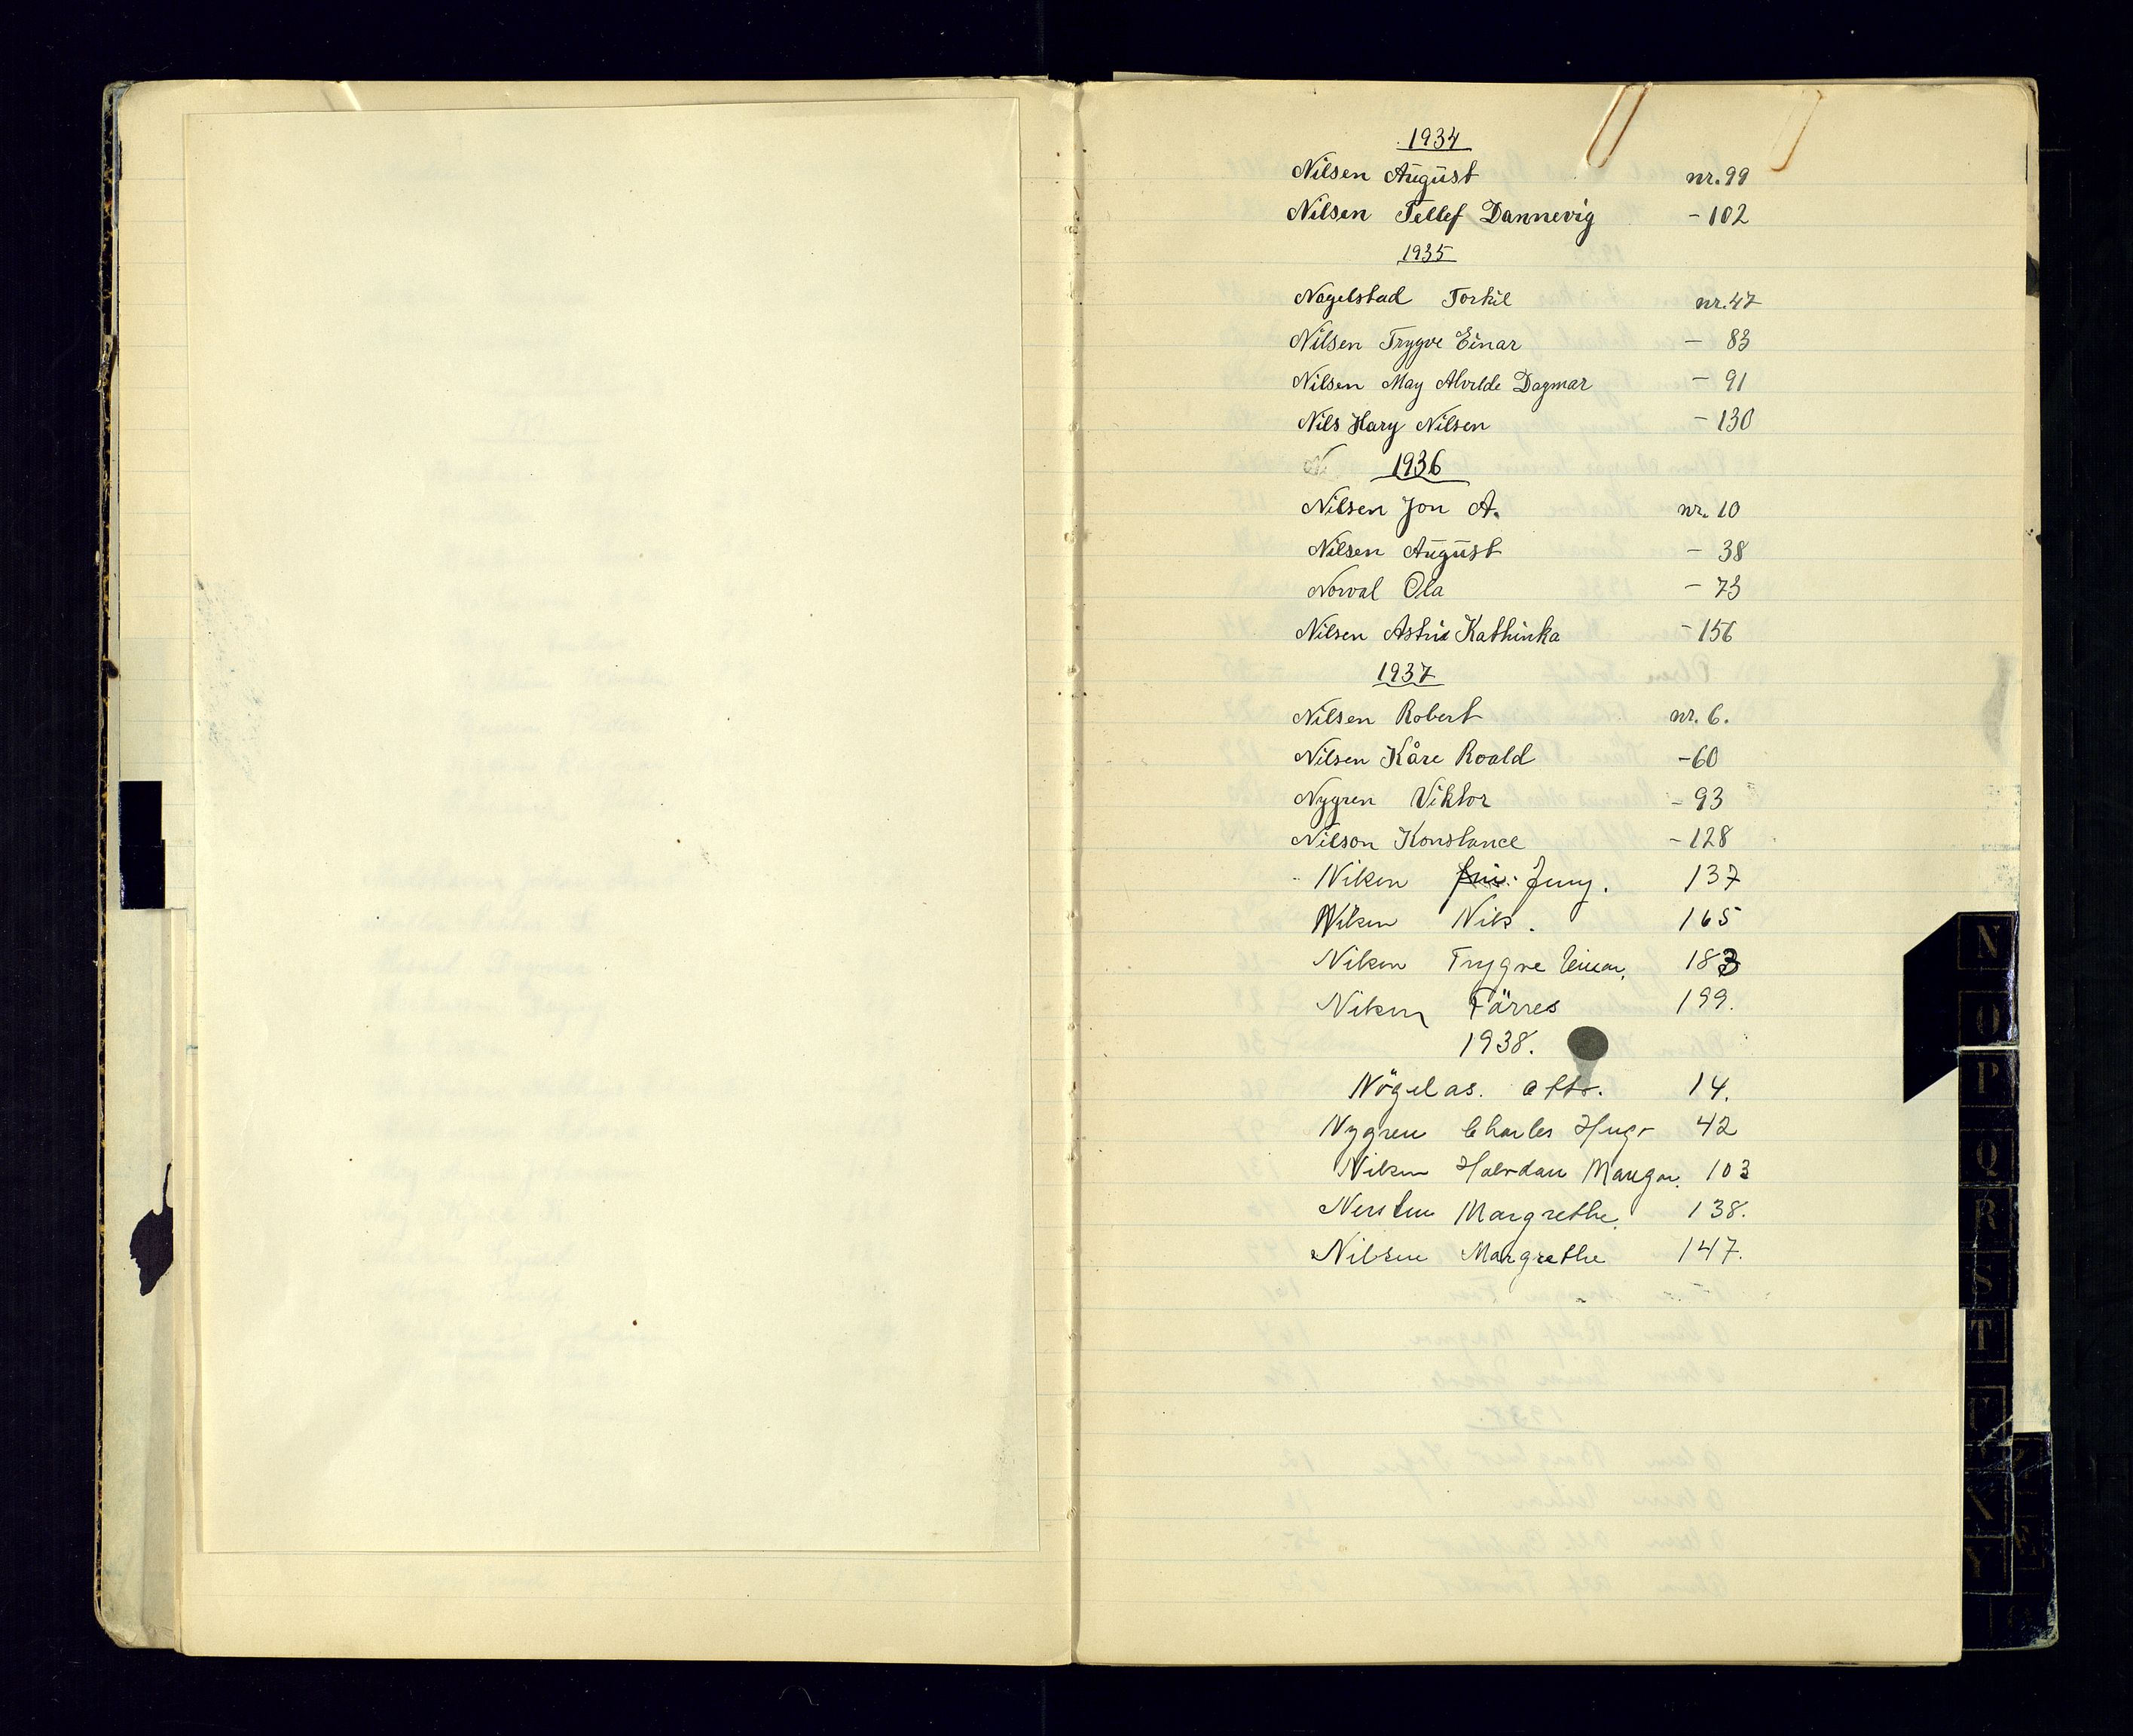 1934
Nilsen August nr. 99
Nilsen Tellef Dannevig - 102
1935
Nagelstad Torkil nr. 47
Nilsen Trygve Einar - 83
Nilsen May Alvilde Dagmar - 91
Nils Hary Nilsen - 130
1936
Nilsen Jon A. nr. 10
Nilsen August - 38
Norval Ola - 73
Nilsen Astri Kathinka - 156
1937
Nilsen Robert nr. 6.
Nilsen Kåre Roald - 60
Nygren Viktor - 93
Nilson Konstance - 128
Nilsen Jenny. 137
Nilsen Nils. 165
Nilsen Trygve Einar. 183
Nilsen Tärres 199.
1938.
Nögel as. Otto. 14.
Nygren Charles Hugo 42
Nilsen Halvdan 103
Margrethe. 138.
Nilsen Margrethe 147.
N
O
P
Q
R
S
T
U